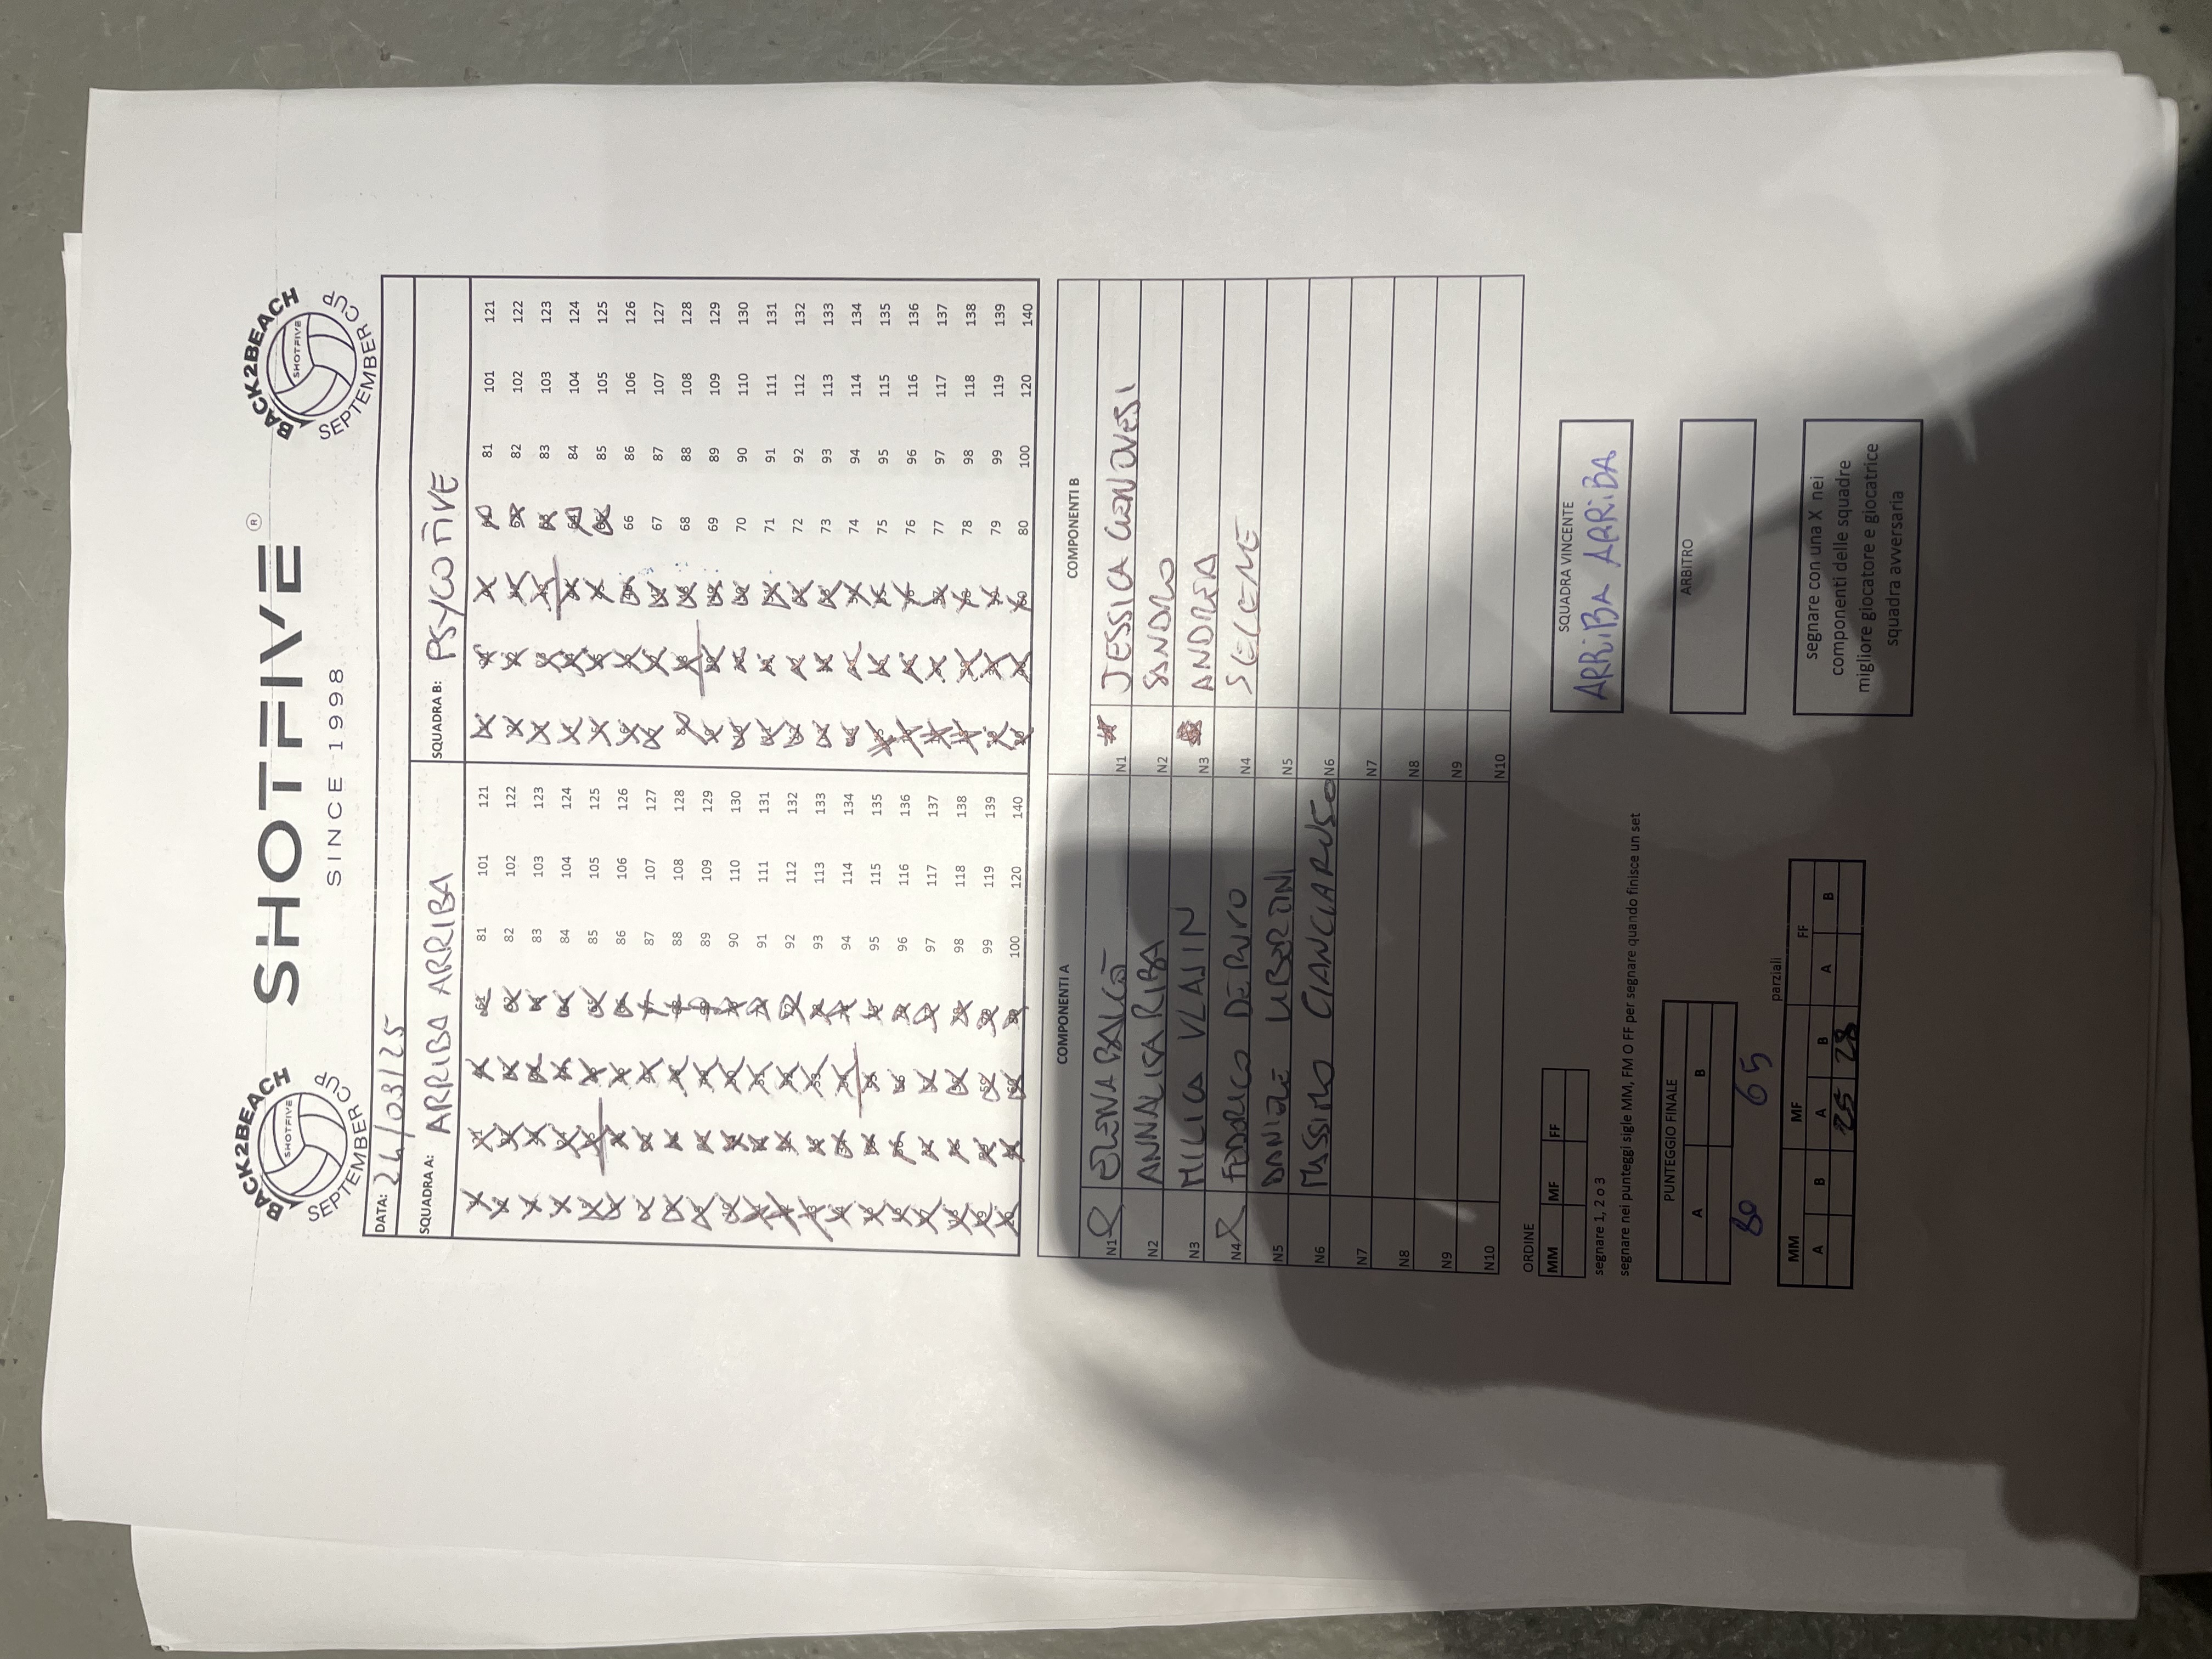 BACK2BEACH
SHOTFIVE
SEPTEMBER CUP
SHOTFIVE ®
SINCE 1998
BACK2BEACH
SHOTFIVE
SEPTEMBER CUP
DATA: 24/03/25
SQUADRA A: ARRIBA ARRIBA
SQUADRA B: PSYCOTIVE
81 101 121 81 101 121
82 102 122 82 102 122
83 103 123 83 103 123
84 104 124 84 104 124
85 105 125 85 105 125
86 106 126 66 86 106 126
87 107 127 67 87 107 127
88 108 128 68 88 108 128
89 109 129 69 89 109 129
90 110 130 70 90 110 130
91 111 131 71 91 111 131
92 112 132 72 92 112 132
93 113 133 73 93 113 133
94 114 134 74 94 114 134
95 115 135 75 95 115 135
96 116 136 76 96 116 136
97 117 137 77 97 117 137
98 118 138 78 98 118 138
99 119 139 79 99 119 139
100 120 140 80 100 120 140
COMPONENTI A COMPONENTI B
N1 ELENA N1 JESSICA GENOVESI
N2 ANNALISA RIBA N2 SANDRO
N3 MILICA VLASIN N3 ANDREA
N4 FEDERICO DERUVO N4 SELENE
N5 DANIELE UBERTINI N5
N6 MASSIMO CIANCIARUSO N6
N7 N7
N8 N8
N9 N9
N10 N10
ORDINE
MM MF FF
segnare 1, 2 o 3
segnare nei punteggi sigle MM, FM O FF per segnare quando finisce un set
SQUADRA VINCENTE
ARRIBA ARRIBA
PUNTEGGIO FINALE
A B
80 65
ARBITRO
parziali
MM MF FF
A B A B A B
25 28
segnare con una X nei
componenti delle squadre
migliore giocatore e giocatrice
squadra avversaria